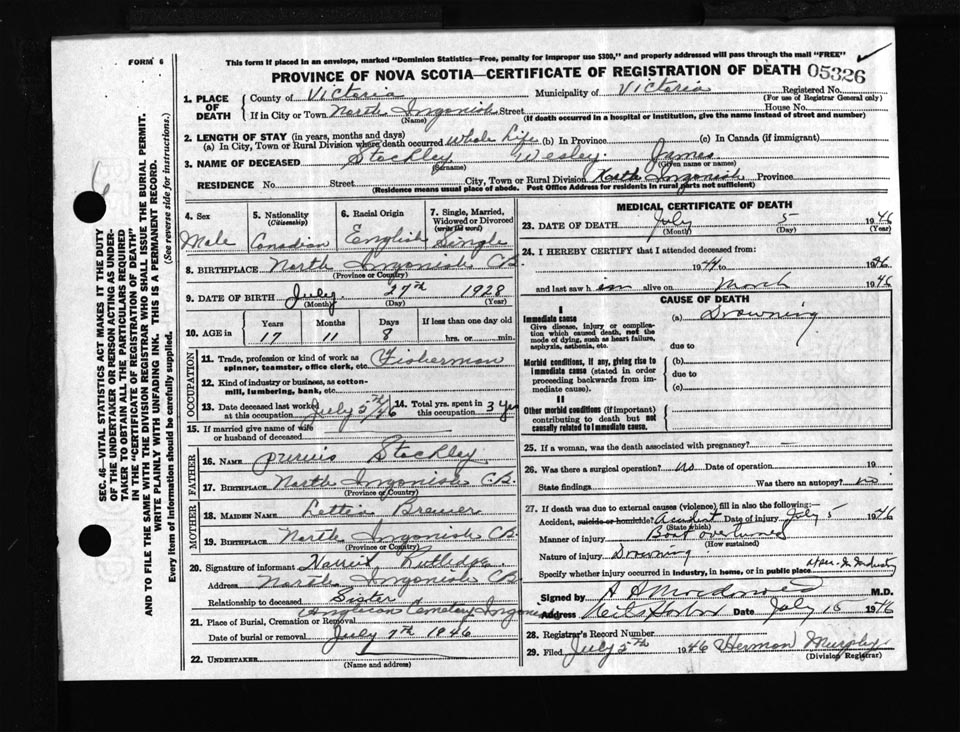 FORM 6
This form if placed in an envelope, marked "Dominion Statistics—Free, penalty for improper use $300," and properly addressed will pass through the mail "FREE"
PROVINCE OF NOVA SCOTIA—CERTIFICATE OF REGISTRATION OF DEATH 05326
SEC. 46—VITAL STATISTICS ACT MAKES IT THE DUTY
OF THE UNDERTAKER OR PERSON ACTING AS UNDER-
TAKER TO OBTAIN ALL THE PARTICULARS REQUIRED
IN THE "CERTIFICATE OF REGISTRATION OF DEATH"
AND TO FILE THE SAME WITH THE DIVISION REGISTRAR WHO SHALL ISSUE THE BURIAL PERMIT.
WRITE PLAINLY WITH UNFADING INK. THIS IS A PERMANENT RECORD.
Every item of information should be carefully supplied. (See reverse side for instructions.)
1. PLACE OF DEATH
County of Victoria Municipality of Victoria Registered No.
(For use of Registrar General only)
If in City or Town North Ingonish Street House No.
(Name) (If death occurred in a hospital or institution, give the name instead of street and number)
2. LENGTH OF STAY (in years, months and days)
(a) In City, Town or Rural Division where death occurred Whole Life (b) In Province (c) In Canada (if immigrant)
3. NAME OF DECEASED Stockley Wesley James
(Surname) (Given name or names)
RESIDENCE No. Street City, Town or Rural Division North Ingonish Province
(Residence means usual place of abode. Post Office Address for residents in rural parts not sufficient)
4. Sex Male
5. Nationality (Citizenship) Canadian
6. Racial Origin English
7. Single, Married, Widowed or Divorced (write the word) Single
8. BIRTHPLACE North Ingonish C.B.
(Province or Country)
9. DATE OF BIRTH July 27th 1928
(Month) (Day) (Year)
10. AGE in Years Months Days If less than one day old
17 11 8 hrs. or min.
OCCUPATION
11. Trade, profession or kind of work as spinner, teamster, office clerk, etc. Fisherman
12. Kind of industry or business, as cotton-mill, lumbering, bank, etc.
13. Date deceased last worked at this occupation July 5th/46 14. Total yrs. spent in this occupation 3 yrs
15. If married give name of wife or husband of deceased
FATHER
16. NAME Stockley
17. BIRTHPLACE North Ingonish C.B.
(Province or Country)
MOTHER
18. MAIDEN NAME Lettia Brewer
19. BIRTHPLACE North Ingonish C.B.
(Province or Country)
20. Signature of informant
Address North Ingonish C.B.
Relationship to deceased Sister
21. Place of Burial, Cremation or Removal Anglican Cemetery Ingonish
Date of burial or removal July 7th 1946
22. UNDERTAKER
(Name and address)
MEDICAL CERTIFICATE OF DEATH
23. DATE OF DEATH July 5 1946
(Month) (Day) (Year)
24. I HEREBY CERTIFY that I attended deceased from:
1944 to 1946
and last saw him alive on March 1946
CAUSE OF DEATH
I
Immediate cause (a) Drowning
Give disease, injury or complica-
tion which caused death, not the
mode of dying, such as heart failure,
asphyxia, asthenia, etc. due to
Morbid conditions, if any, giving rise to (b)
immediate cause (stated in order due to
proceeding backwards from im- (c)
mediate cause).
II
Other morbid conditions (if important)
contributing to death but not
causally related to immediate cause.
25. If a woman, was the death associated with pregnancy?
26. Was there a surgical operation? no Date of operation 19
State findings Was there an autopsy? no
27. If death was due to external causes (violence) fill in also the following:
Accident, suicide or homicide? Accident Date of injury July 5 1946
(State which)
Manner of injury Boat overturned
(How sustained)
Nature of injury Drowning
Specify whether injury occurred in industry, in home, or in public place
Signed by M.D.
Address Neils Harbor Date July 15 1946
28. Registrar's Record Number
29. Filed July 5th 1946 Hermon Murphy
(Division Registrar)